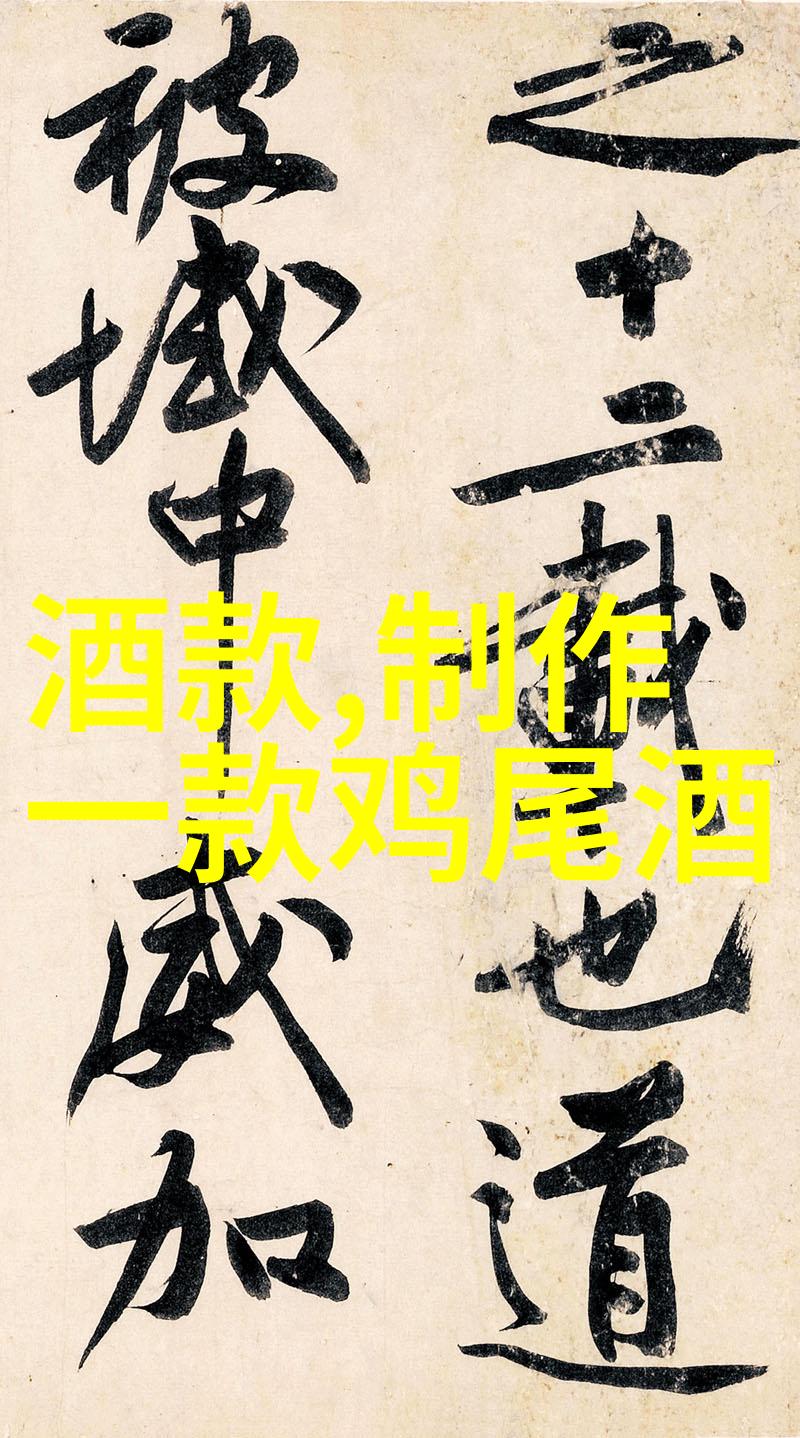 之十二载也道
被域中威加
酒款,制作
一款鸡尾酒